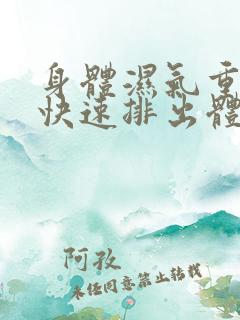 身體濕氣重
快速排出體
阿孜
未經同意禁止轉載